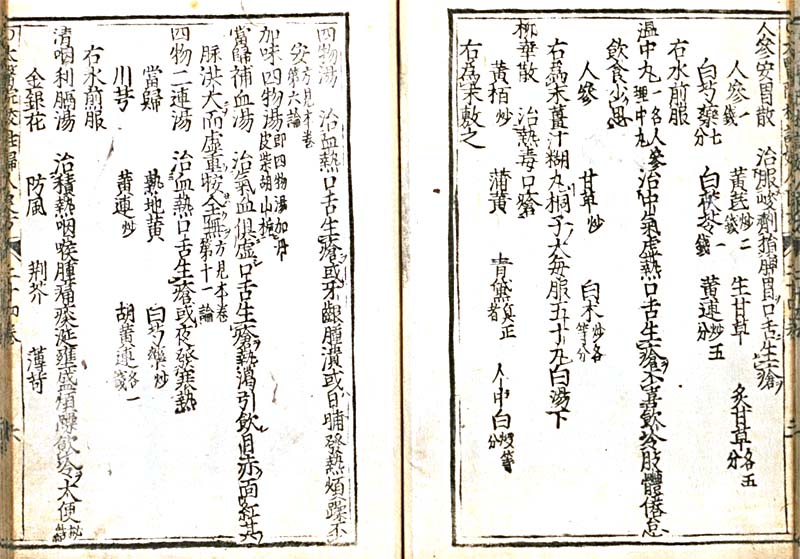 人參安胃散　治服峻劑損脾胃口舌生瘡
人參一錢　黃芪炒二錢　生甘草　炙甘草各五分
白芍藥七分　白茯苓一錢　黃連炒五分
右水煎服
溫中丸一名人參理中丸　治中氣虛熱口舌生瘡不喜飲冷肢體倦怠
飲食少思
人參　甘草炒　白朮炒各等分
右為末薑汁糊丸桐子大每服五十丸白湯下
柳華散　治熱毒口瘡
黃栢炒　蒲黃　青黛真正者　人中白煅等分
右為末敷之
四物湯　治血熱口舌生瘡或牙齦腫潰或日晡發熱煩躁不
安方見本卷第六論
加味四物湯即四物湯加丹皮柴胡山梔
當歸補血湯　治氣血俱虛口舌生瘡熱渴引飲目赤面紅其
脉洪大而虛重按全無方見本卷第十一論
四物二連湯　治血熱口舌生瘡或夜發寒熱
當歸　熟地黃　白芍藥炒
川芎　黃連炒　胡黃連各一錢
右水煎服
清咽利膈湯　治積熱咽喉腫痛痰涎壅盛煩躁飲冷大便秘結
金銀花　防風　荆芥　薄荷